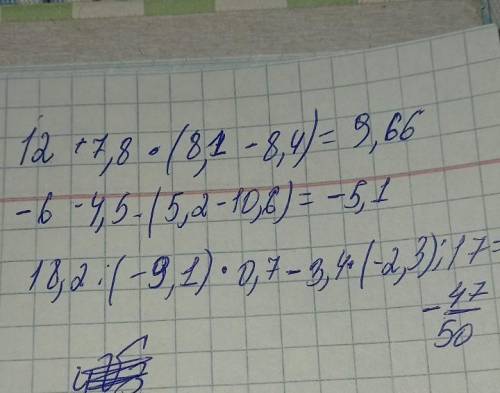 12 + 7,8 · (8,1 - 8,4) = 9,66
-6 - 4,5 - (5,2 - 10,6) = -5,1
18,2 : (-9,1) · 0,7 - 3,4 · (-2,3) : 17 =
- 47/50